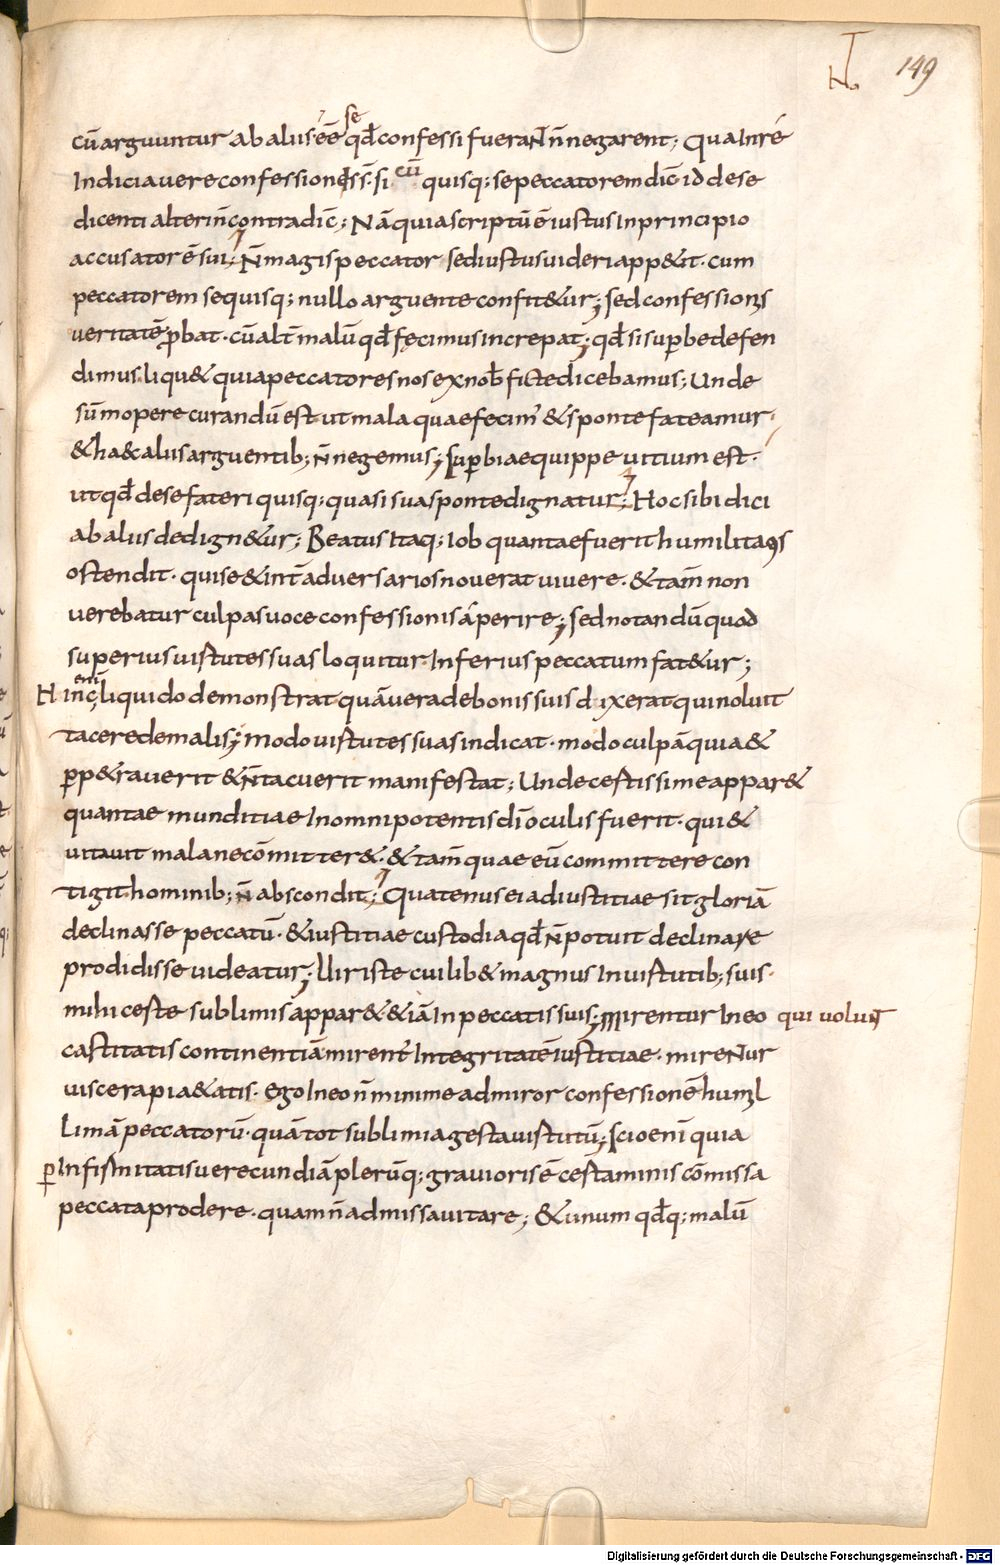 149
cū arguuntur ab aliis ēē se qđ confessi fueraNt n̄ negarent; Qua In re
Indicia vere confessionis s̄ si cū quisq; se peccatorem dic̄ id de se
dicenti alteri n̄ contradic̄; Nā quia scriptū ē iustus In principio
accusator ē sui; N̄ magis peccator sed iustus uideri app&it. cum
peccatorem se quisq; nullo arguente confit&ur; sed confessionis
veritatē ꝓbat. cū alt̄ malū qđ fecimus increpat; qđ si suꝑbe defen
dimus. liqu& quia peccatores nos ex nob̄ ficte dicebamus; Unde
sūmopere curandū est ut mala quae fecim' & sponte fateamur.
& haec aliis arguentib; n̄ negemus; Suꝑbiae quippe uitium est.
ut qđ de se fateri quisq; quasi sua sponte dignatur; Hoc sibi dici
ab aliis dedign&ur; Beatus Itaq; Iob quantae fuerit humilitatis
ostendit. qui se & int̄ adversarios noverat vivere. & tam̄ non
verebatur culpas voce confessionis aperire; sed notandū quod
superius uirtutes suas loquitur. Inferius peccatum fat&ur;
Hinc eni liquido demonstrat quā vera de bonis suis dixerat qui noluit
tacere de malis; Modo uirtutes suas indicat. modo culpā quia &
ꝑp&raverit & n̄ tacuerit manifestat; Unde certissime appar&
quantae munditiae In omnipotentis dī oculis fuerit. qui &
vitavit mala ne cōmitter&. & tam̄ quae eū committere con
tigit hominib; n̄ abscondit; Quatenus ei ad iustitiae sit gloriā
declinasse peccatū. & iustitiae custodia qđ N̄ potuit declinare
prodidisse uideatur; Uir iste cuilib& magnus In uirtutib; suis.
mihi certe sublimis appar& & iā In peccatis suis; Mirentur In eo qui voluNt
castitatis continentiā mirent̄ Integritatē iustitiae. mireNtur
viscera pi&atis. ego In eo n̄ minime admiror confessionē humil
limā peccatorū. quā tot sublimia gesta uirtutū; Scio eni quia
ꝑ Infirmitatis verecundiā plerūq; gravioris ē certaminis cōmissa
peccata prodere. quam n̄ admissa vitare; & unum qđq; malū
Digitalisierung gefördert durch die Deutsche Forschungsgemeinschaft - DFG